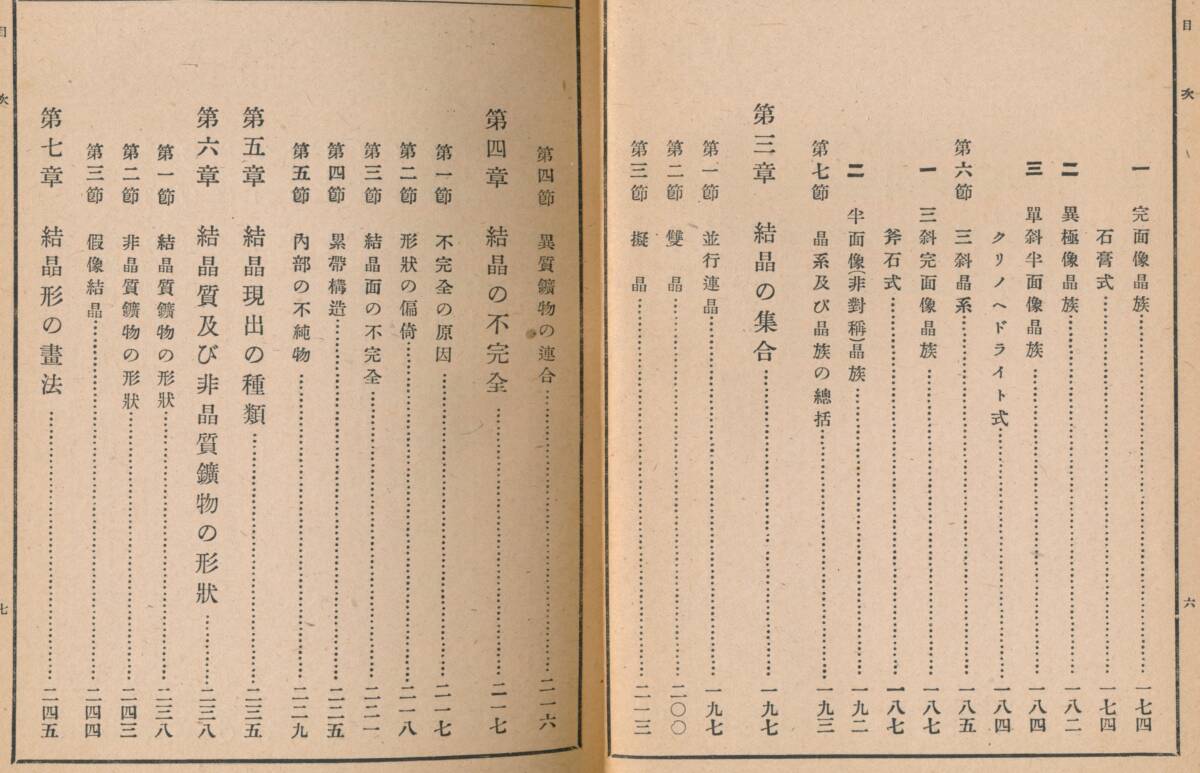 目次
六
一 完面像晶族…一七四
石膏式…一七四
二 異極像晶族…一八二
三 單斜半面像晶族…一八四
クリノヘドライト式…一八四
第六節 三斜晶系…一八五
一 三斜完面像晶族…一八七
斧石式…一八七
二 半面像(非對稱)晶族…一九二
第七節 晶系及び晶族の總括…一九三
第三章 結晶の集合…一九七
第一節 並行連晶…一九七
第二節 雙晶…二〇〇
第三節 擬晶…二一三
第四節 異質鑛物の連合…二一六
第四章 結晶の不完全…二一七
第一節 不完全の原因…二一七
第二節 形狀の偏倚…二一八
第三節 結晶面の不完全…二二一
第四節 累帶構造…二二五
第五節 內部の不純物…二二九
第五章 結晶現出の種類…二三五
第六章 結晶質及び非晶質鑛物の形狀…二三八
第一節 結晶質鑛物の形狀…二三八
第二節 非晶質鑛物の形狀…二四三
第三節 假像結晶…二四四
第七章 結晶形の畫法…二四五
目次
七